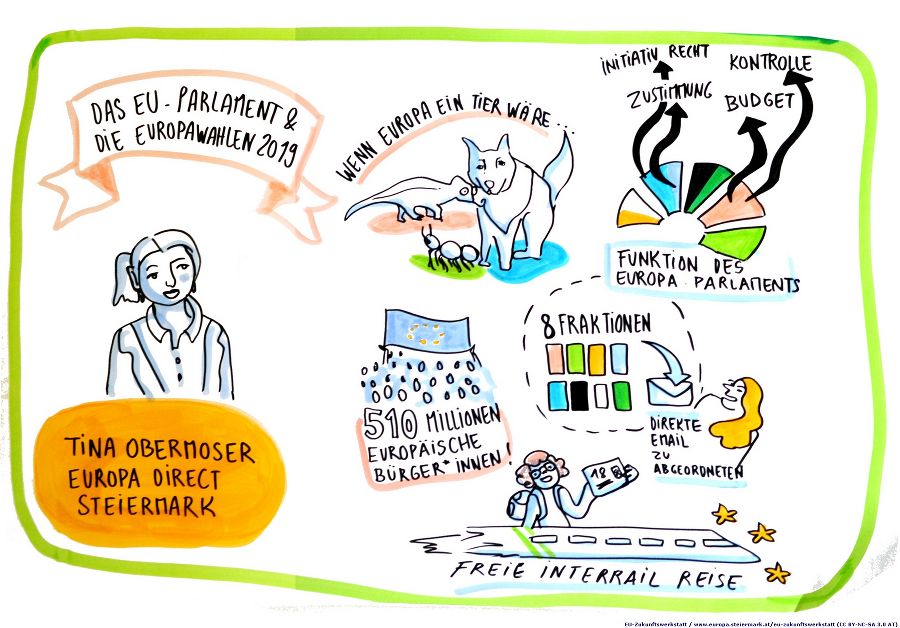 DAS EU-PARLAMENT &
DIE EUROPAWAHLEN 2019
WENN EUROPA EIN TIER WÄRE...
INITIATIV RECHT
KONTROLLE
ZUSTIMMUNG
BUDGET
FUNKTION DES
EUROPA-PARLAMENTS
8 FRAKTIONEN
DIREKTE
EMAIL
ZU
ABGEORDNETEN
510 MILLIONEN
EUROPÄISCHE
BÜRGER*INNEN!
TINA OBERMOSER
EUROPA DIRECT
STEIERMARK
18
FREIE INTERRAIL REISE
EU-Zukunftswerkstatt / www.europa.steiermark.at/eu-zukunftswerkstatt (CC BY-NC-SA 3.0 AT)